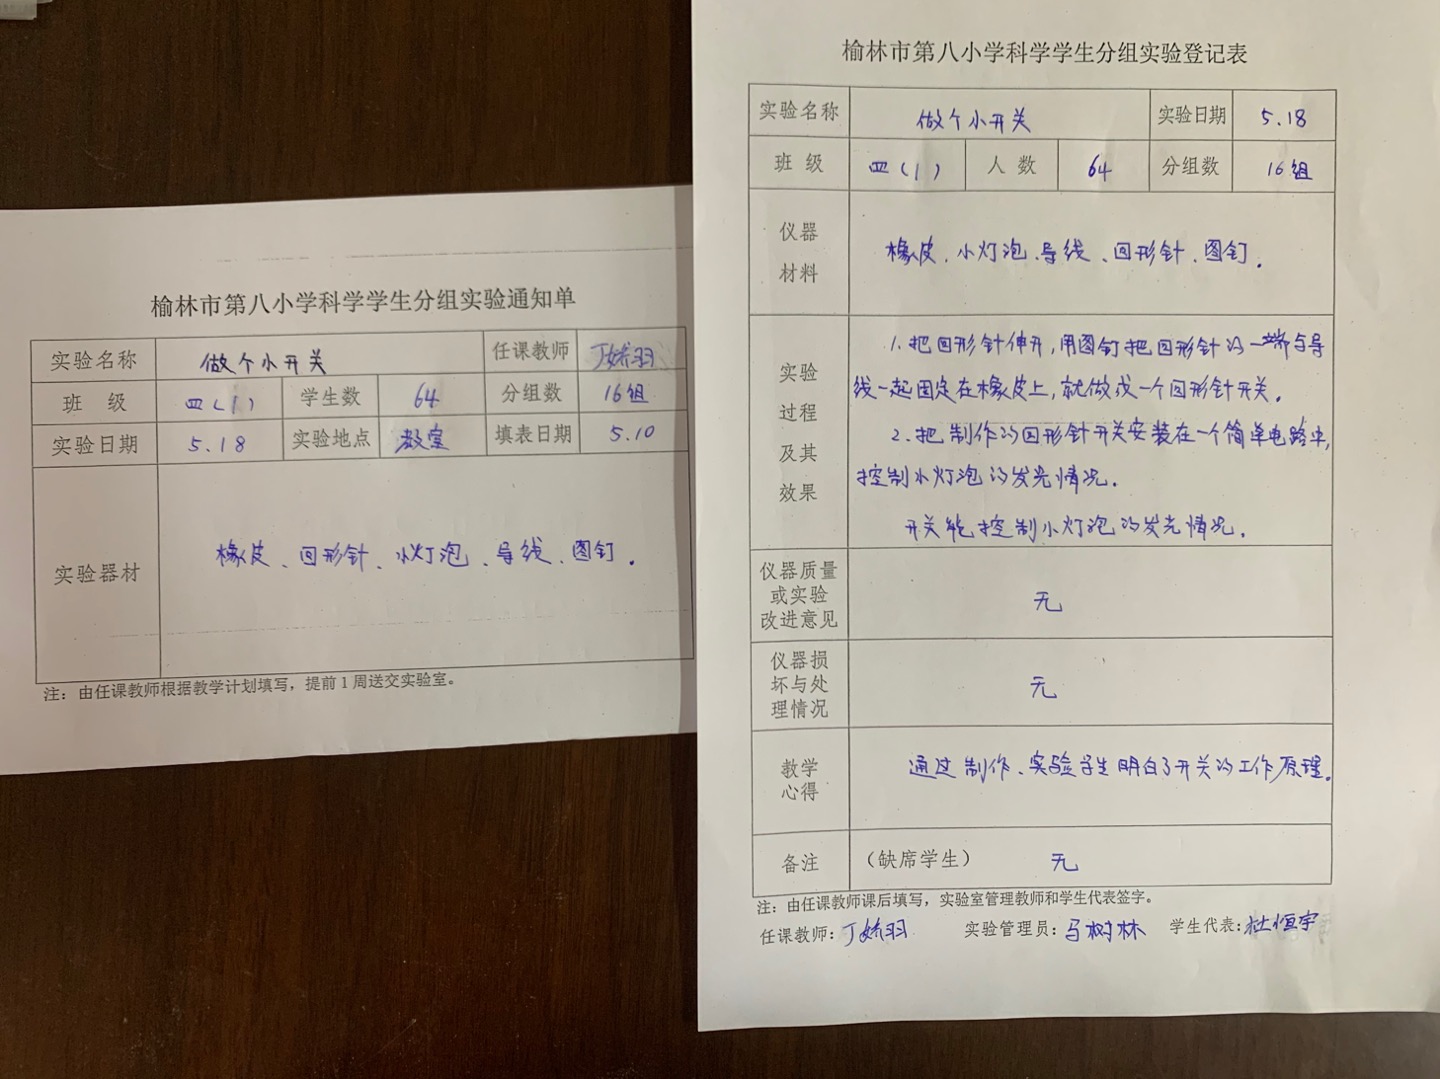 榆林市第八小学科学学生分组实验通知单
实验名称 做个小开关 任课教师 丁娇羽
班 级 四(1) 学生数 64 分组数 16组
实验日期 5.18 实验地点 教室 填表日期 5.10
实验器材 橡皮、回形针、小灯泡、导线、图钉.
注：由任课教师根据教学计划填写，提前1周送交实验室。
榆林市第八小学科学学生分组实验登记表
实验名称 做个小开关 实验日期 5.18
班 级 四(1) 人 数 64 分组数 16组
仪器
材料
橡皮、小灯泡、导线、回形针、图钉.
实验
过程
及其
效果
1.把回形针伸开,用图钉把回形针的一端与导
线一起固定在橡皮上,就做成一个回形针开关.
2.把制作的回形针开关安装在一个简单电路中,
控制小灯泡的发光情况.
开关能控制小灯泡的发光情况.
仪器质量
或实验
改进意见
无
仪器损
坏与处
理情况
无
教学
心得
通过制作、实验学生明白了开关的工作原理.
备注 （缺席学生） 无
注：由任课教师课后填写，实验室管理教师和学生代表签字。
任课教师：丁娇羽 实验管理员：马树林 学生代表：杜恒宇